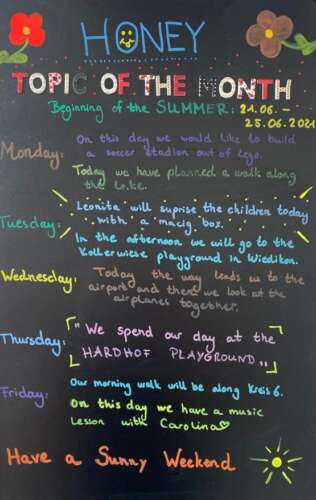 HONEY
TOPIC OF THE MONTH
Beginning of the SUMMER: 21.06. –
25.06.2021
Monday: On this day we would like to build
a soccer stadion out of Lego.
Today we have planned a walk along
the Lake.
Tuesday: Leonita will suprise the children today
with a macig box.
In the afternoon we will go to the
Kollerwiese playground in Wiedikon.
Wednesday: Today the way leads us to the
airport and there we look at the
airplanes together.
Thursday: "We spend our day at the
HARDHOF PLAYGROUND„
Friday: Our morning walk will be along Kreis 6.
On this day we have a music
Lesson with Carolina♡
Have a Sunny Weekend